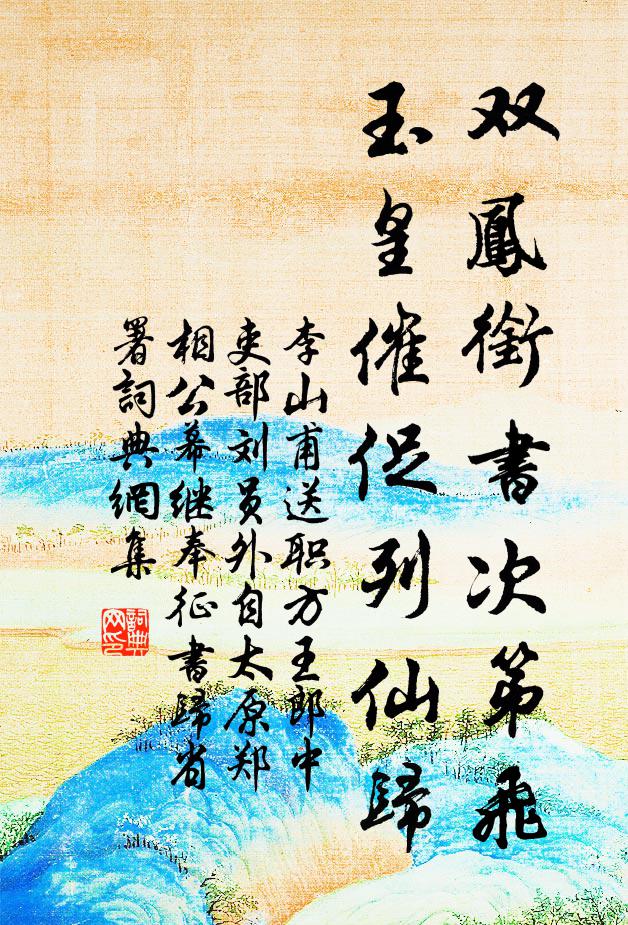 双鳳銜書次第飛
玉皇催促列仙歸
李山甫送职方王郎中
吏部刘员外自太原郑
相公幕继奉征書歸省
署詞典網集
詞典
网印